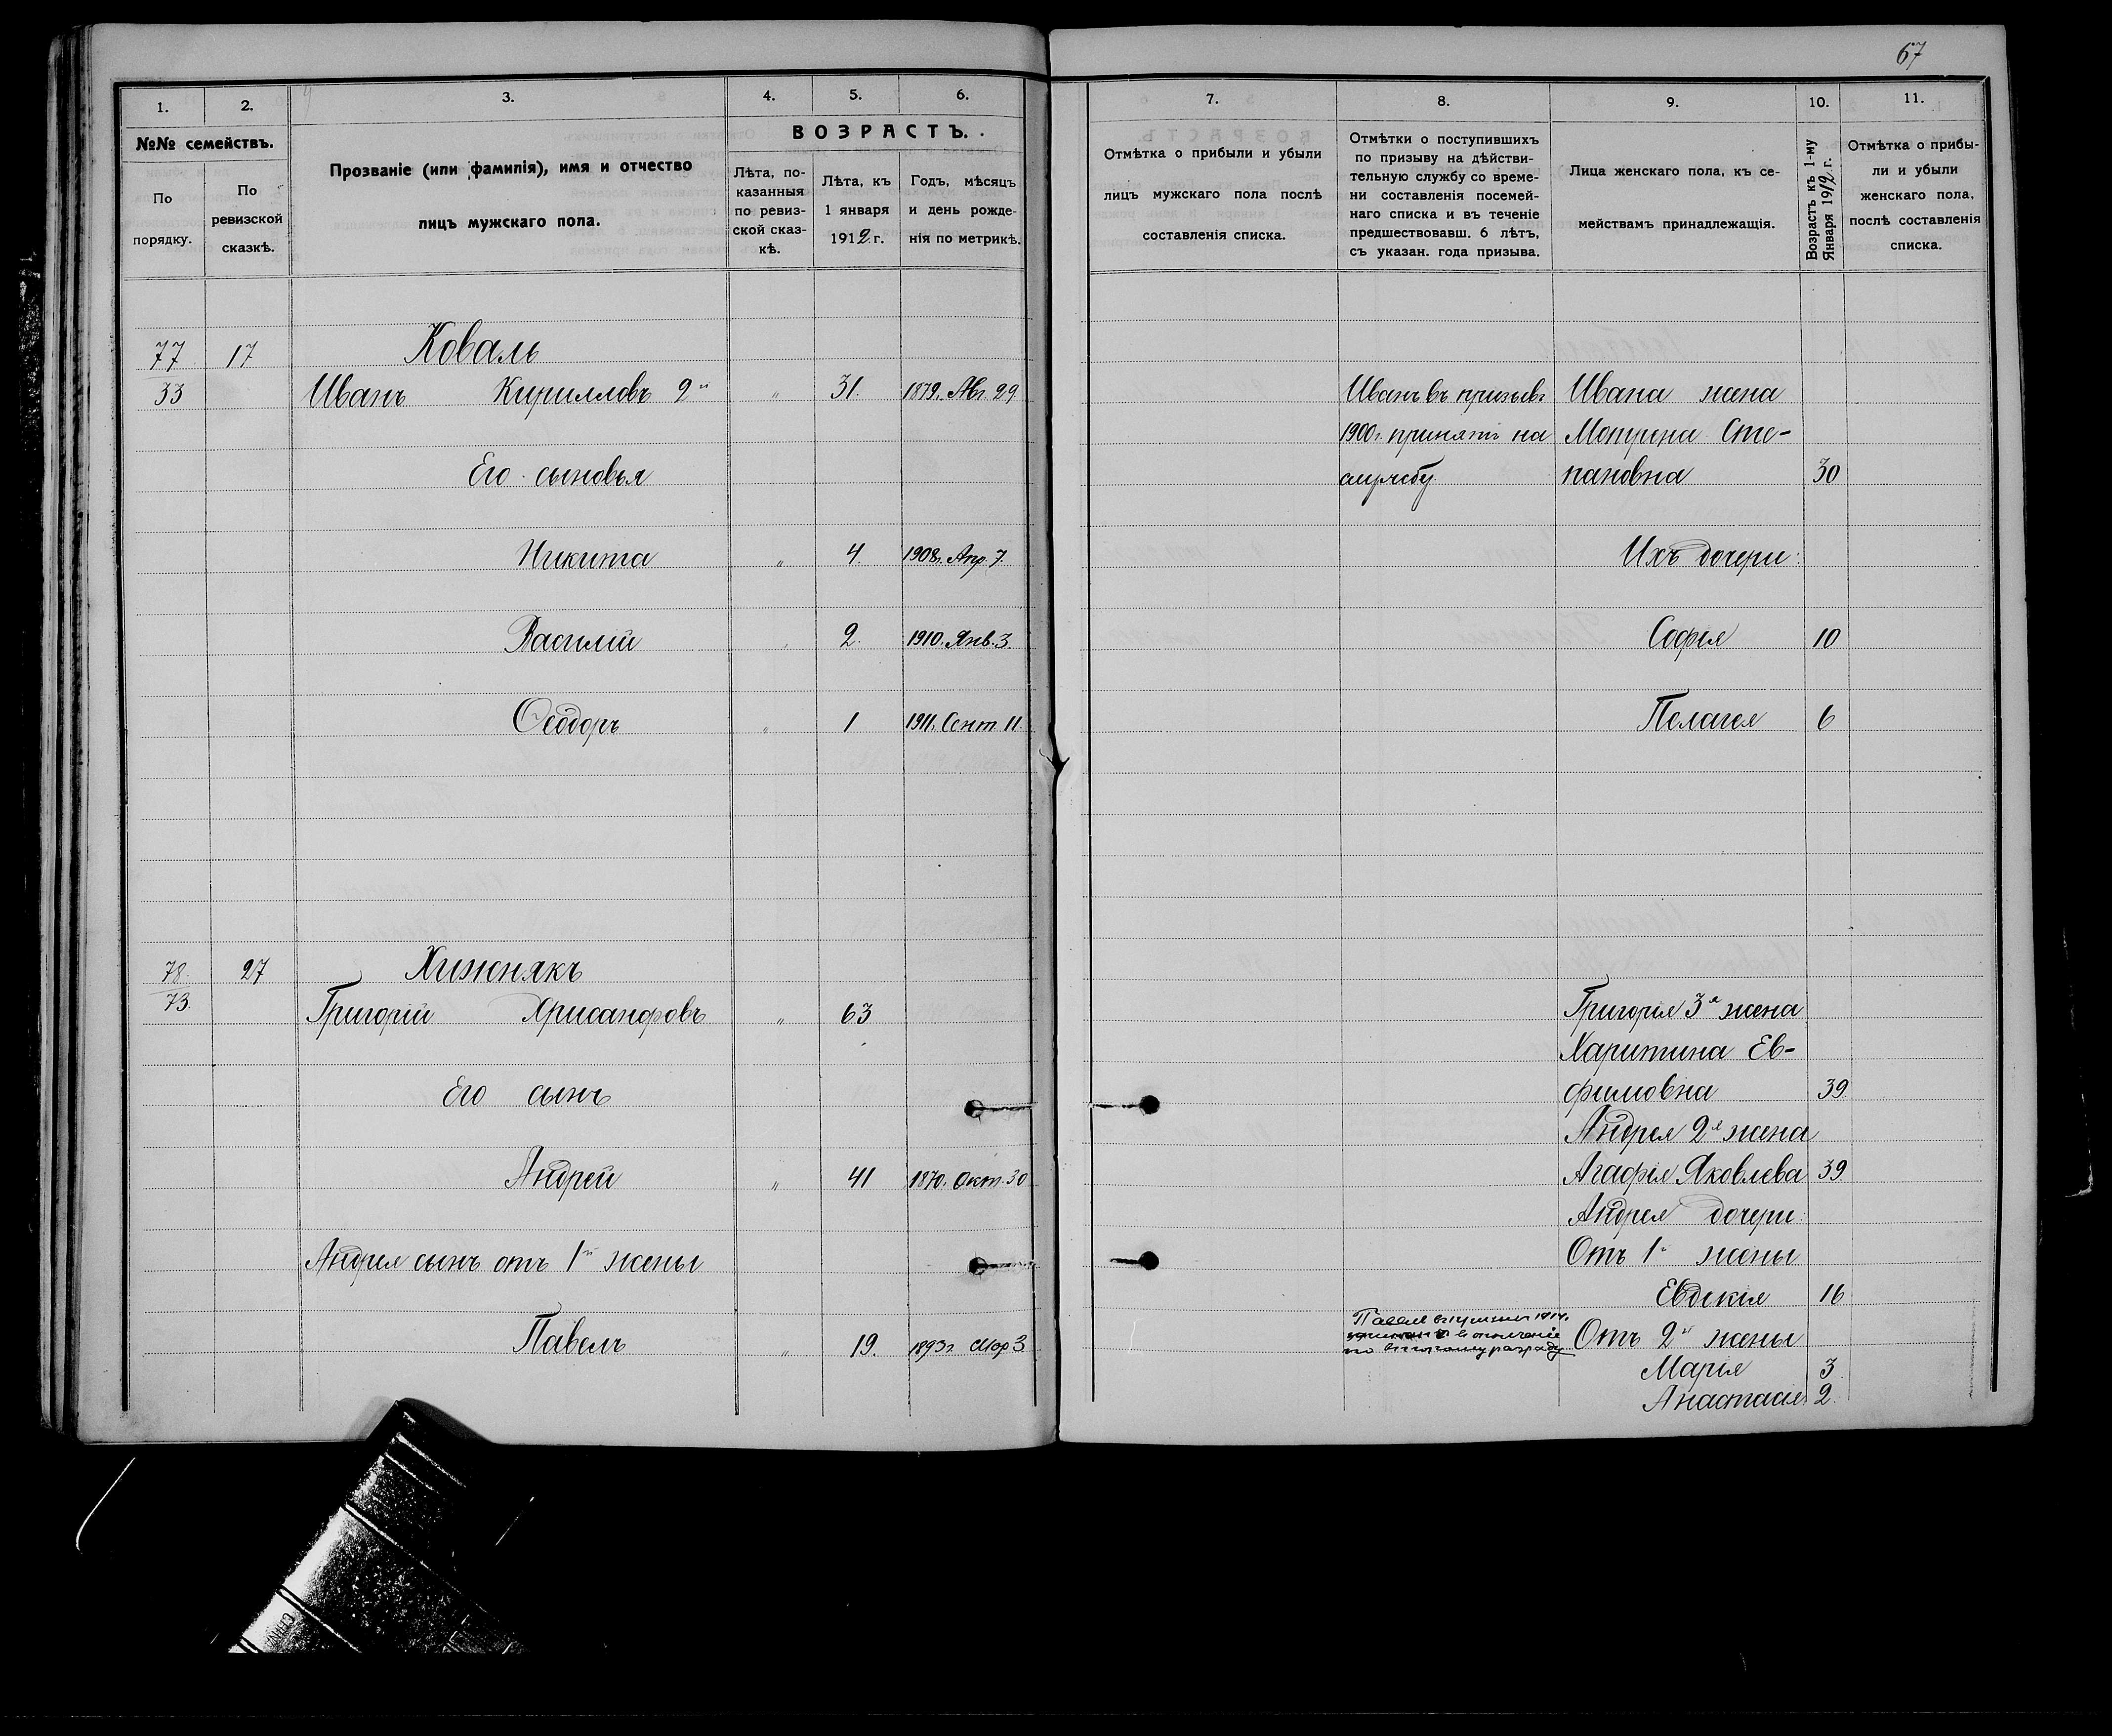 67
1. 2. 3. 4. 5. 6.
№№ семействъ.
По порядку.
По ревизской сказкѣ.
Прозваніе (или фамилія), имя и отчество
лицъ мужскаго пола.
ВОЗРАСТЪ.
Лѣта, по-
казанныя
по ревиз-
ской сказ-
кѣ.
Лѣта, къ
1 января
1912 г.
Годъ, мѣсяцъ
и день рожде-
нія по метрикѣ.
77 17 Коваль
33 Иванъ Кирилловъ 2й " 31. 1879. Авг. 29
Его сыновья
Никита " 4. 1908г. Апр. 7.
Василій " 2. 1910. Янв. 3.
Ѳеодоръ " 1 1911. Сент 11.
78. 27 Хижнякъ
73. Григорій Хрисанфовъ " 63
Его сынъ
Андрей " 41 1870. Окт. 30
Андрея сынъ отъ 1й жены
Павелъ " 19. 1893г Мар 3.
7. 8. 9. 10. 11.
Отмѣтка о прибыли и убыли
лицъ мужскаго пола послѣ
составленія списка.
Отмѣтки о поступившихъ
по призыву на дѣйстви-
тельную службу со време-
ни составленія посемей-
наго списка и въ теченіе
предшествовавш. 6 лѣтъ,
съ указан. года призыва.
Лица женскаго пола, къ се-
мействамъ принадлежащія.
Возрастъ къ 1-му
Января 1912 г.
Отмѣтка о прибы-
ли и убыли
женскаго пола,
послѣ составленія
списка.
Иванъ въ призывъ Ивана жена
1900г. принятъ на Мотрина Сте-
службу пановна 30
Ихъ дочери:
Софія 10
Пелагея 6
Григорія 3я жена
Харитина Ев-
фимовна 39
Андрея 2я жена
Агафія Яковлева 39
Андрея дочери:
Отъ 1й жены
Евдокія 16
Павелъ 1914.
въ ополченіе Отъ 2й жены
по второму разряду
Марія 3
Анастасія 2.